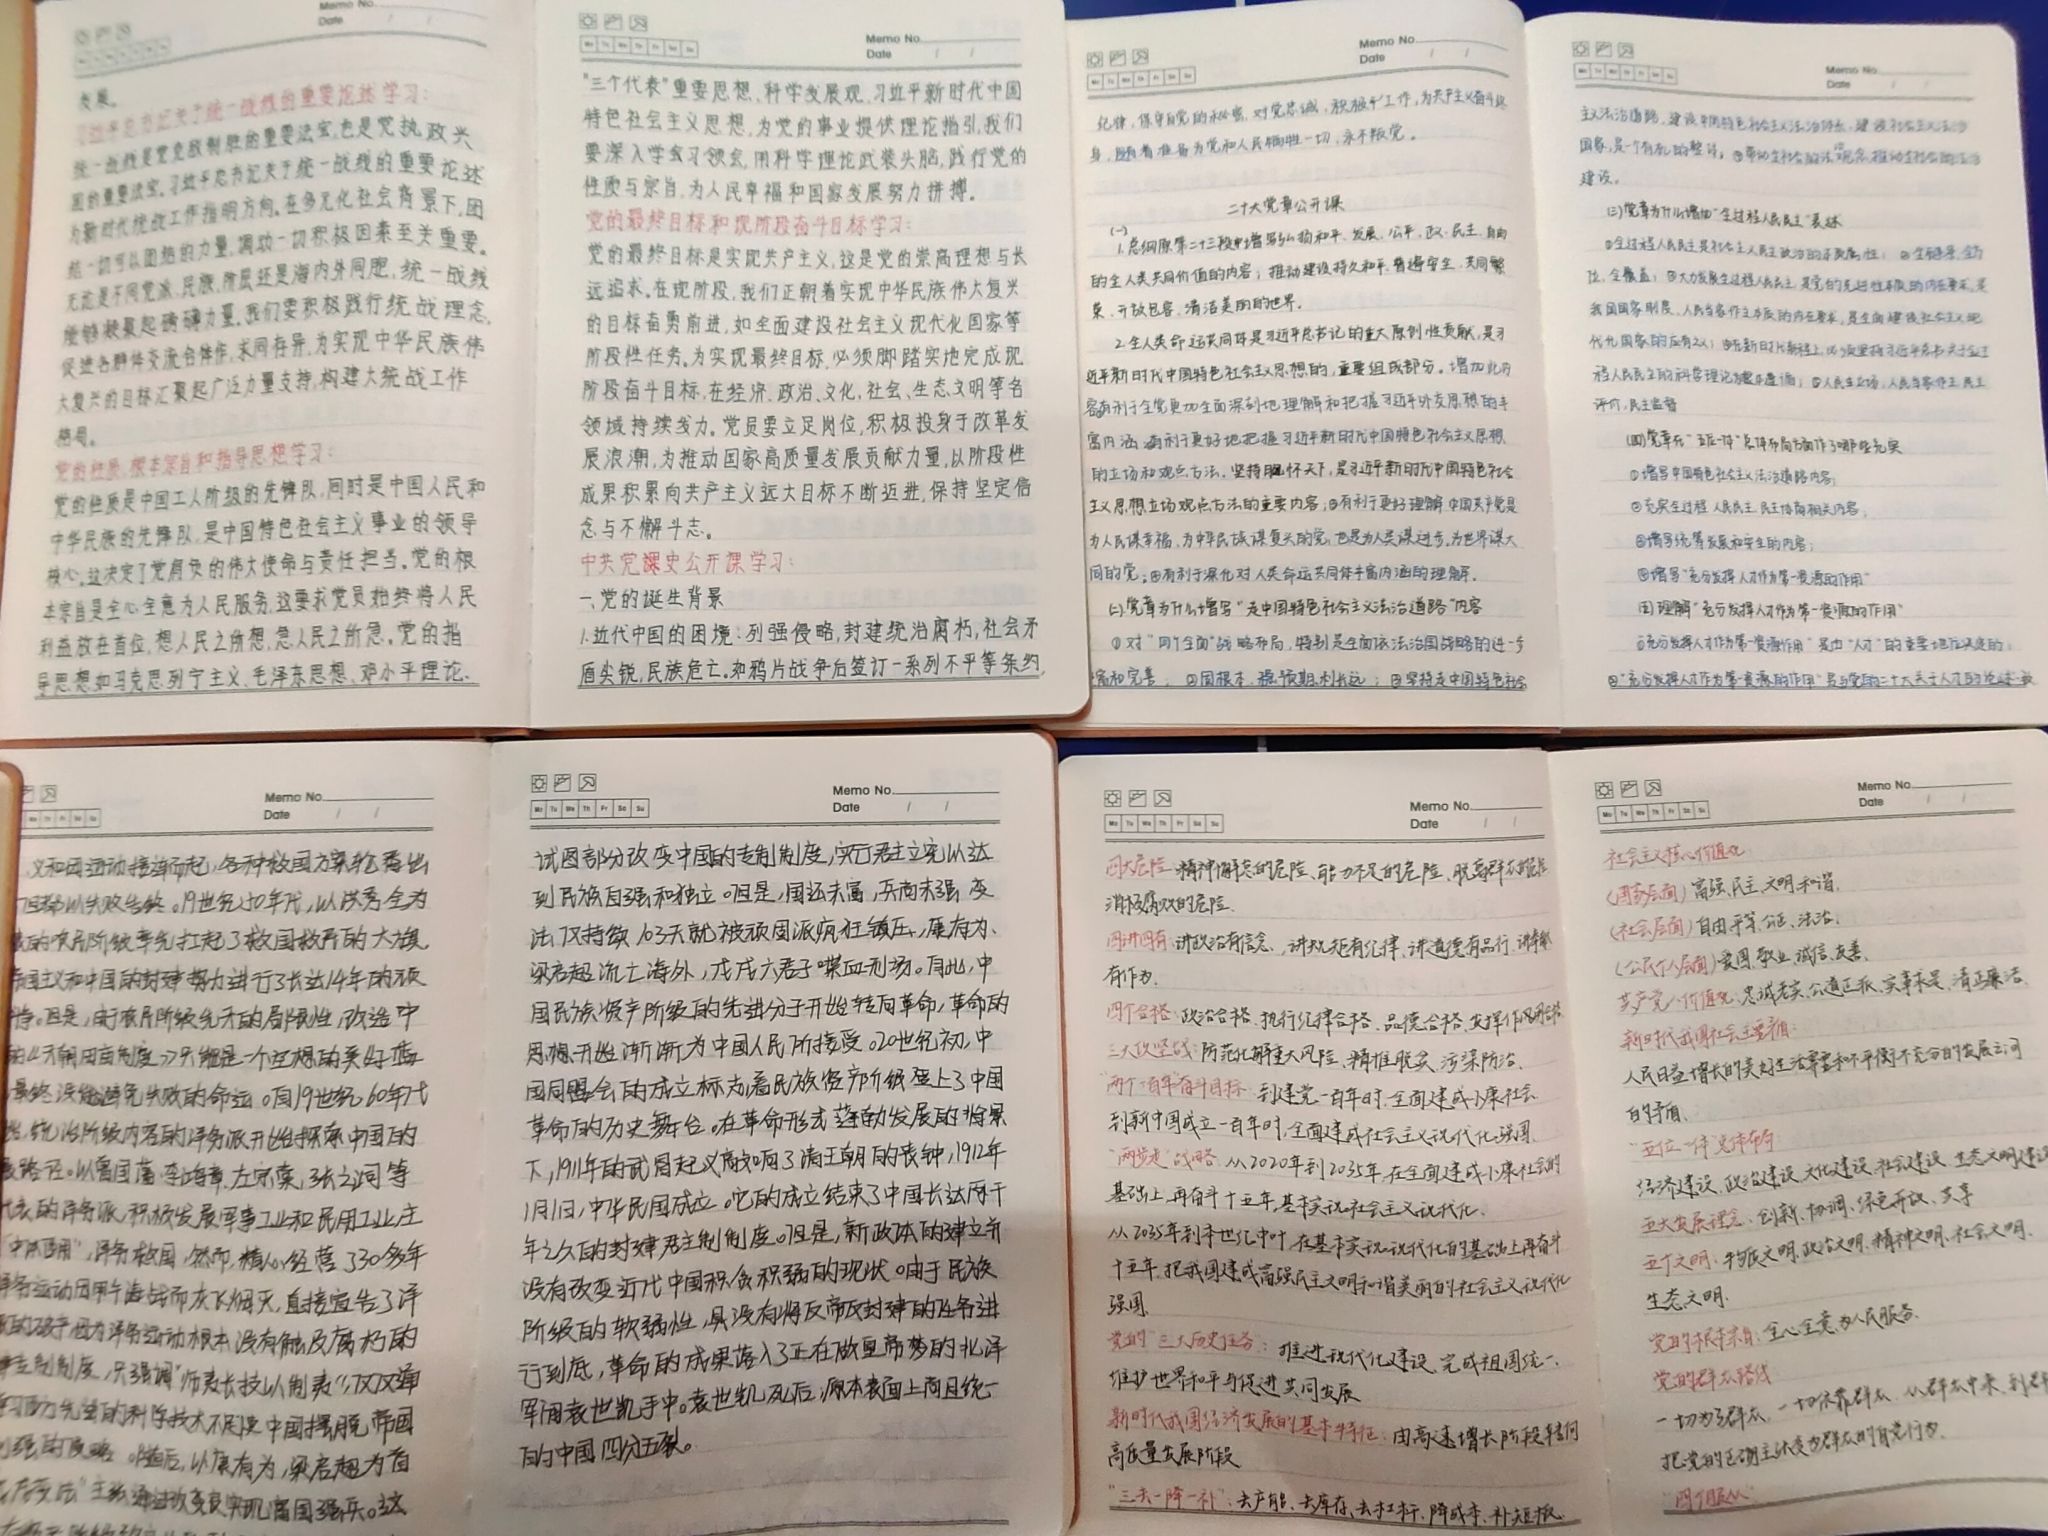 Memo No.
Date / /
发展。
习近平总书记关于统一战线的重要论述学习：
统一战线是党克敌制胜的重要法宝,也是党执政兴
国的重要法宝。习近平总书记关于统一战线的重要论述
为新时代统战工作指明方向。在多元化社会背景下,团
结一切可以团结的力量,调动一切积极因素至关重要。
无论是不同党派、民族、阶层还是海内外同胞,统一战线
能够凝聚起磅礴力量。我们要积极践行统战理念,
促进各群体交流合作,求同存异,为实现中华民族伟
大复兴的目标汇聚起广泛力量支持,构建大统战工作
格局。
党的性质、根本宗旨和指导思想学习：
党的性质是中国工人阶级的先锋队,同时是中国人民和
中华民族的先锋队,是中国特色社会主义事业的领导
核心。这决定了党肩负的伟大使命与责任担当。党的根
本宗旨是全心全意为人民服务,这要求党员始终将人民
利益放在首位,想人民之所想,急人民之所急。党的指
导思想如马克思列宁主义、毛泽东思想、邓小平理论、
Mo Tu We Th Fr Sa Su
Memo No.
Date / /
"三个代表"重要思想、科学发展观、习近平新时代中国
特色社会主义思想,为党的事业提供理论指引,我们
要深入学习领会,用科学理论武装头脑,践行党的
性质与宗旨,为人民幸福和国家发展努力拼搏。
党的最终目标和现阶段奋斗目标学习：
党的最终目标是实现共产主义,这是党的崇高理想与长
远追求。在现阶段,我们正朝着实现中华民族伟大复兴
的目标奋勇前进,如全面建设社会主义现代化国家等
阶段性任务。为实现最终目标,必须脚踏实地完成现
阶段奋斗目标,在经济、政治、文化、社会、生态文明等各
领域持续发力。党员要立足岗位,积极投身于改革发
展浪潮,为推动国家高质量发展贡献力量,以阶段性
成果积累向共产主义远大目标不断迈进,保持坚定信
念与不懈斗志。
中共党课史公开课学习：
一、党的诞生背景
1.近代中国的困境：列强侵略,封建统治腐朽,社会矛
盾尖锐,民族危亡。如鸦片战争后签订一系列不平等条约,
Mo Tu We Th Fr Sa Su
Memo No.
Date / /
纪律,保守党的秘密,对党忠诚,积极工作,为共产主义奋斗终
身,随时准备为党和人民牺牲一切,永不叛党。
二十大党章公开课
(一)
1.总纲原第二十三段中增写弘扬和平、发展、公平、正义、民主、自由
的全人类共同价值的内容；推动建设持久和平、普遍安全、共同繁
荣、开放包容、清洁美丽的世界。
2.全人类命运共同体是习近平总书记的重大原创性贡献,是习
近平新时代中国特色社会主义思想的重要组成部分。增加此内
容有利于全党更加全面深刻地理解和把握习近平外交思想的丰
富内涵,有利于更好地把握习近平新时代中国特色社会主义思想
的立场和观点方法。坚持胸怀天下,是习近平新时代中国特色社会
主义思想立场观点方法的重要内容；③有利于更好理解中国共产党是
为人民谋幸福、为中华民族谋复兴的党,也是为人类谋进步、为世界谋大
同的党；④有利于深化对人类命运共同体丰富内涵的理解。
(二)党章为什么增写"走中国特色社会主义法治道路"内容
①对"四个全面"战略布局,特别是全面依法治国战略的进一步
丰富和完善；②固根本、稳预期、利长远；③坚持走中国特色社会
Memo No.
Date / /
主义法治道路,建设中国特色社会主义法治体系,建设社会主义法治
国家,是一个有机的整体,④带动全社会的法治观念,推动全社会的法治
建设。
(三)党章为什么增加"全过程人民民主"表述
①全过程人民民主是社会主义民主政治的本质属性；②全链条、全方
位、全覆盖；③大力发展全过程人民民主,是党的先进性本质的内在要求,是
我国国家制度、人民当家作主本质的内在要求,是全面建设社会主义现
代化国家的应有之义；
评价,民主监督
(四)党章在"五位一体"总体布局方面作了哪些充实
①增写中国特色社会主义法治道路内容；
②充实全过程人民民主、民主协商相关内容；
③增写统筹发展和安全的内容；
④增写"充分发挥人才作为第一资源的作用"
(五)理解"充分发挥人才作为第一资源的作用"
①"充分发挥人才作为第一资源作用"是由"人才"的重要地位决定的；
②"充分发挥人才作为第一资源的作用"
Memo No.
Date / /
义和团运动接连而起,各种救国方案轮番出
但都以失败告终。19世纪50年代,以洪秀全为
的农民阶级率先扛起了救国救民的大旗
帝国主义和中国的封建势力进行了长达14年的顽
但是,由于农民阶级先天的局限性,改造中
的《天朝田亩制度》只能是一个空想的美好蓝
最终没能避免失败的命运。自19世纪60年代
统治阶级内部的洋务派开始探索中国的
路径。以曾国藩、李鸿章、左宗棠、张之洞等
代表的洋务派,积极发展军事工业和民用工业,主
"中体西用",洋务救国,然而,精心经营了30多年
洋务运动因甲午海战而灰飞烟灭,直接宣告了洋
的破产,因为洋务运动根本没有触及腐朽的
专制制度,只强调"师夷长技以制夷",仅仅通
习西方先进的科学技术不足使中国摆脱帝国
列强的侵略。随后,以康有为、梁启超为首
Mo Tu We Th Fr Sa Su
Memo No.
Date / /
试图部分改变中国的专制制度,实行君主立宪以达
到民族自强和独立。但是,国还未富,兵尚未强,变
法仅持续103天就被顽固派疯狂镇压,康有为、
梁启超流亡海外,戊戌六君子喋血刑场。自此,中
国民族资产阶级的先进分子开始转向革命,革命的
思想开始渐渐为中国人民所接受。20世纪初,中
国同盟会的成立标志着民族资产阶级登上了中国
革命的历史舞台。在革命形式蓬勃发展的背景
下,1911年的武昌起义敲响了清王朝的丧钟,1912年
1月1日,中华民国成立。它的成立结束了中国长达两千
年之久的封建君主制制度。但是,新政体的建立并
没有改变近代中国积贫积弱的现状。由于民族
阶级的软弱性,其没有将反帝反封建的任务进
行到底,革命的成果落入了正在做皇帝梦的北洋
军阀袁世凯手中。袁世凯死后,原本表面上尚且统一
的中国四分五裂。
Mo Tu We Th Fr Sa Su
Memo No.
Date / /
四大危险：精神懈怠的危险、能力不足的危险、脱离群众的危险
消极腐败的危险。
四讲四有：讲政治有信念、讲规矩有纪律、讲道德有品行、讲奉献
有作为。
四个合格：政治合格、执行纪律合格、品德合格、发挥作用合格
三大攻坚战：防范化解重大风险、精准脱贫、污染防治。
"两个一百年"奋斗目标：到建党一百年时,全面建成小康社会
到新中国成立一百年时,全面建成社会主义现代化强国。
"两步走"战略：从2020年到2035年,在全面建成小康社会的
基础上,再奋斗十五年,基本实现社会主义现代化。
从2035年到本世纪中叶,在基本实现现代化的基础上再奋斗
十五年,把我国建成富强民主文明和谐美丽的社会主义现代化
强国。
党的"三大历史任务"：推进现代化建设、完成祖国统一、
维护世界和平与促进共同发展
新时代我国经济发展的基本特征：由高速增长阶段转向
高质量发展阶段
"三去一降一补"：去产能、去库存、去杠杆、降成本、补短板。
Mo Tu We Th Fr Sa Su
Memo No.
Date / /
社会主义核心价值观
(国家层面)富强、民主、文明、和谐、
(社会层面)自由、平等、公正、法治、
(公民个人层面)爱国、敬业、诚信、友善、
共产党人价值观：忠诚老实、公道正派、实事求是、清正廉洁、
新时代我国社会主要矛盾：
人民日益增长的美好生活需要和不平衡不充分的发展之间
的矛盾。
"五位一体"总体布局：
经济建设、政治建设、文化建设、社会建设、生态文明建设
五大发展理念：创新、协调、绿色、开放、共享
五个文明：物质文明、政治文明、精神文明、社会文明、
生态文明。
党的根本宗旨：全心全意为人民服务。
党的群众路线
一切为了群众、一切依靠群众、从群众中来、到群
把党的正确主张变为群众的自觉行动。
"四个服从"